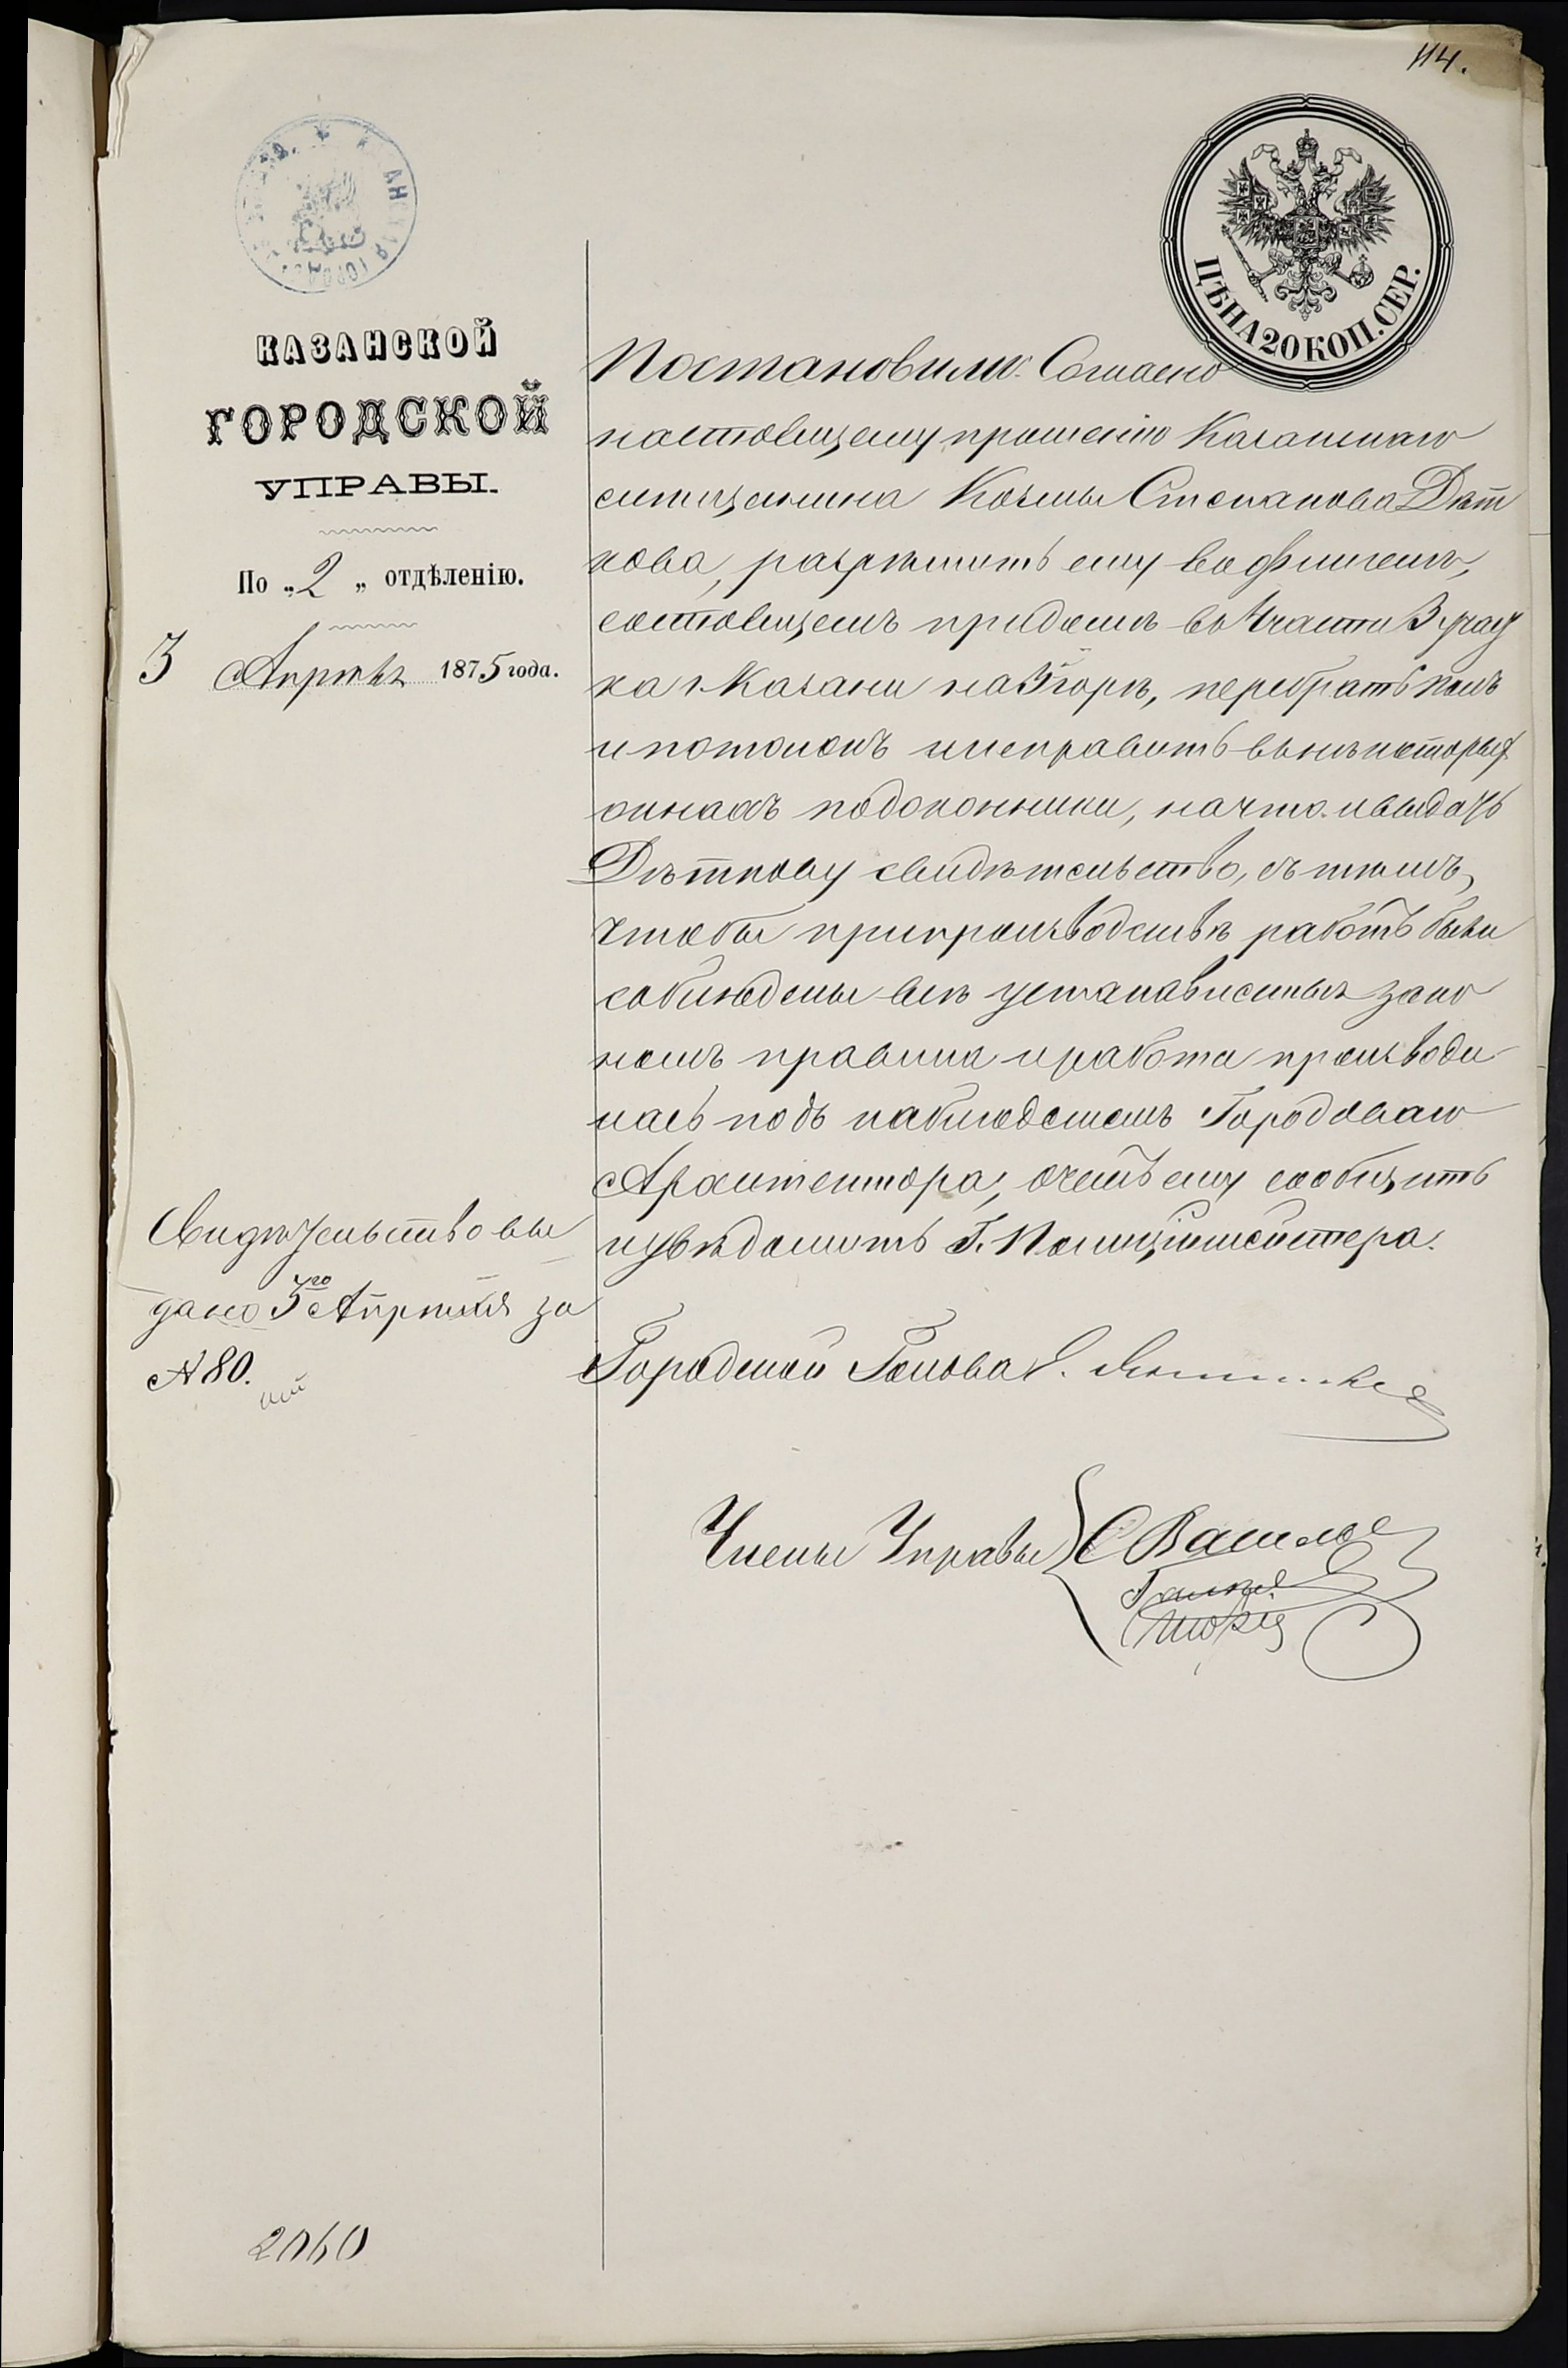 114.
ЦѢНА 20 КОП. СЕР.
КАЗАНСКОЙ
ГОРОДСКОЙ
УПРАВЫ.
По „2„ отдѣленію.
3 Апрѣля 1875 года.
Постановили: Согласно
настоящему прошенію Казанскаго
мѣщанина Козьмы Степанова Дѣт
кова, разрѣшить ему во флигелѣ,
состоящемъ при домѣ во части 3 участ
ка г. Казани на горѣ, перебрать полъ
и потолокъ и исправить въ нѣкоторых
окнахъ подоконники, на что и выдать
Дѣткову свидѣтельство, съ тѣмъ,
чтобы при производствѣ работъ были
соблюдены всѣ установленныя зако
номъ правила и работа производи
лась подъ наблюденіемъ Городоваго
Архитектора, о чемъ ему сообщить
и увѣдомить Г. Полиціймейстера.
Свидѣтельство вы
дано 5го Апрѣля за
№ 80.
Городской Голова
Члены Управы
2060